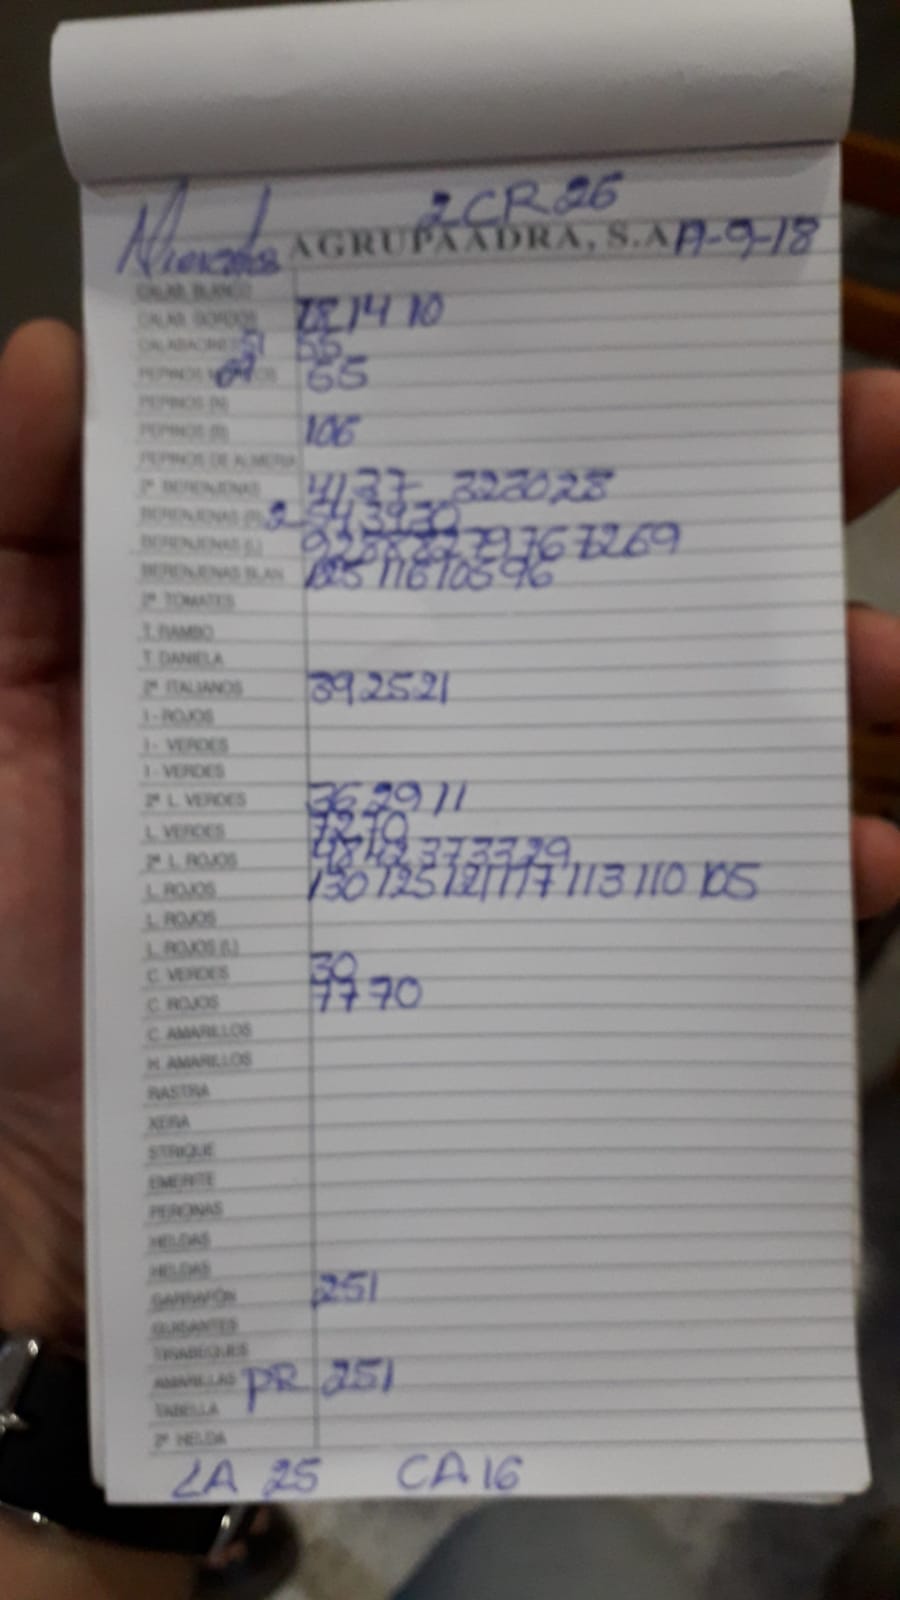 2CR 26
Miercoles AGRUPAADRA, S.A 19-9-18
CALAB. BLANCO
CALAB. GORDOS 18 14 10
CALABACINES 51 55
PEPINOS 55
PEPINOS (N)
PEPINOS (B) 106
PEPINOS DE ALMERIA
2ª BERENJENAS 41 37 32 30 28
BERENJENAS (R) 2 54 39 30
BERENJENAS (L) 92 88 82 79 76 72 69
BERENJENAS BLAN 125 116 105 96
2ª TOMATES
T. RAMBO
T. DANIELA
2ª ITALIANOS 39 25 21
I - ROJOS
I - VERDES
I - VERDES
2ª L. VERDES 36 29 11
L. VERDES 72 70
2ª L. ROJOS 48 42 37 33 29
L. ROJOS 130 125 121 117 113 110 105
L. ROJOS
L. ROJOS (L)
C. VERDES 30
C. ROJOS 77 70
C. AMARILLOS
H. AMARILLOS
RASTRA
XERA
STRIQUE
EMERITE
PERONAS
HELDAS
HELDAS
GARRAFÓN 251
GUISANTES
TIRABEQUES
AMARILLAS PR 251
TABELLA
2ª HELDA
LA 25 CA 16